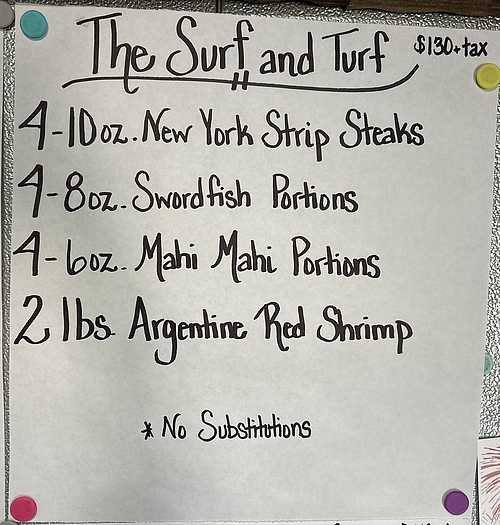 The Surf and Turf $130+tax
4-10oz. New York Strip Steaks
4-8oz. Swordfish Portions
4-6oz. Mahi Mahi Portions
2 lbs. Argentine Red Shrimp
* No Substitutions